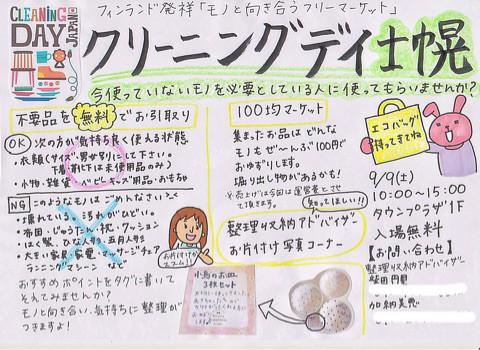 CLEANING
DAY
JAPAN
フィンランド発祥「モノと向き合うフリーマーケット」
クリーニングデイ士幌
今使っていないモノを必要としている人に使ってもらいませんか?
不要品を無料でお引取り
OK 次の方が気持ち良く使える状態
・衣類(サイズ・男女別にして下さい。
下着・靴下は未使用品のみ)
・小物・雑貨・ベビーキッズ用品・おもちゃ
NG このようなモノはごめんなさい
・壊れている・汚れがひどい。
・布団・じゅうたん・枕・クッション
・はく製・ひな人形・五月人形
・大きい家具・家電・マッサージチェア
ランニングマシーンなど
おすすめポイントをタグに書いて
そえてみませんか?
モノと向き合い、気持ちに整理が
つきますよ!
100均マーケット
集まったお品はどんな
モノもぜ〜んぶ100円で
おゆずりします。
掘り出し物があるかも!
知ってほしい!!
整理収納アドバイザー
お片付け写真コーナー
お片付けの
ススメ
小鳥のお皿
3枚セット
エコバッグ
持ってきてね
9/9(土)
10:00〜15:00
タウンプラザ1F
入場無料
【お問い合わせ】
整理収納アドバイザー